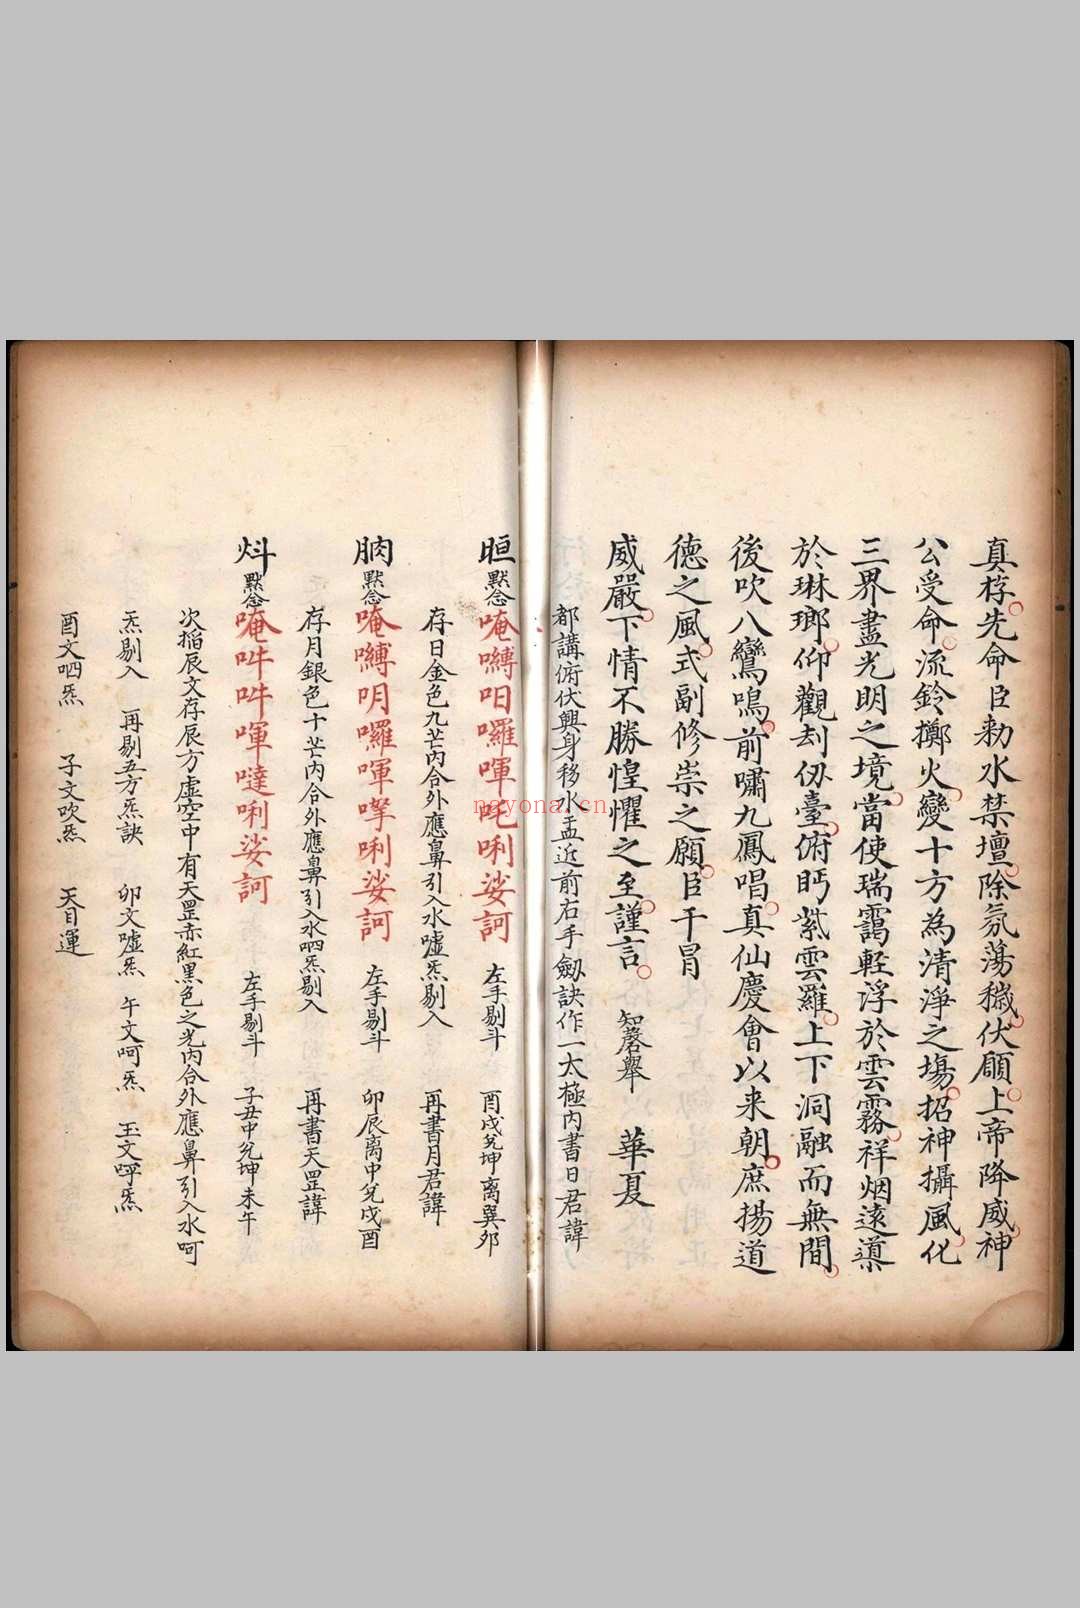 真桴。先命臣勑水禁壇。除氛蕩穢。伏願。上帝降威神
公受命。流鈴擲火。變十方為清淨之場。招神攝風。化
三界盡光明之境。當使瑞靄輕浮於雲霧。祥烟遠導
於琳瑯。仰觀刦仞臺。俯眄紫雲羅。上下洞融而無間。
後吹八鸞鳴。前嘯九鳳唱。真仙慶會以来朝。庶揚道
德之風。式副修崇之願。臣干冒
威嚴。下情不勝惶懼之至。謹言。 知磬舉 華夏
都講俯伏興身移水盂近前右手劔訣作一太極內書日君諱
晅默念唵嚩㕵囉㖇吒唎娑訶 左手剔斗 酉戌兊坤离巽夘
存日金色九芒內合外應鼻引入水噓炁剔入 再書月君諱
朒默念唵嚩明囉㖇拏唎娑訶 左手剔斗 卯辰离中兊戌酉
存月銀色十芒內合外應鼻引入水呬炁剔入 再書天罡諱
炓默念唵吽吽㖇噠唎娑訶 左手剔斗 子丑中兊坤未午
次掐辰文存辰方虛空中有天罡赤紅黑色之光內合外應鼻引入水呵
炁剔入 再剔五方炁訣 卯文噓炁 午文呵炁 玉文呼炁
酉文呬炁 子文吹炁 天目運
nayona.cn